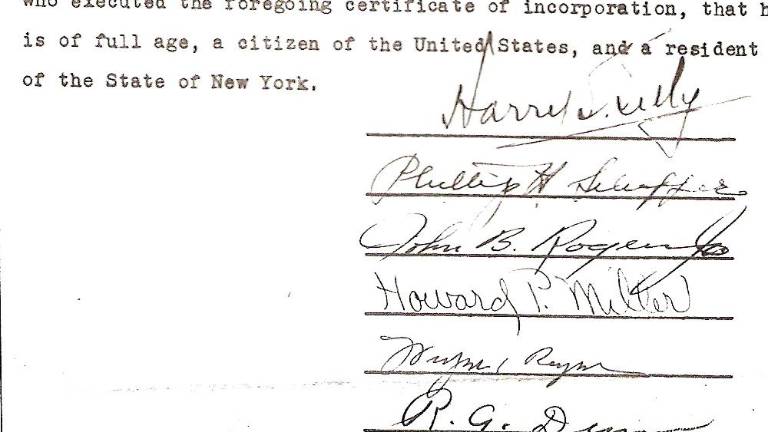 who executed the foregoing certificate of incorporation, that h
is of full age, a citizen of the United States, and a resident
of the State of New York.
Harry
Phillip H
John B. Rogers Jr
Howard P. Miller
R. G.